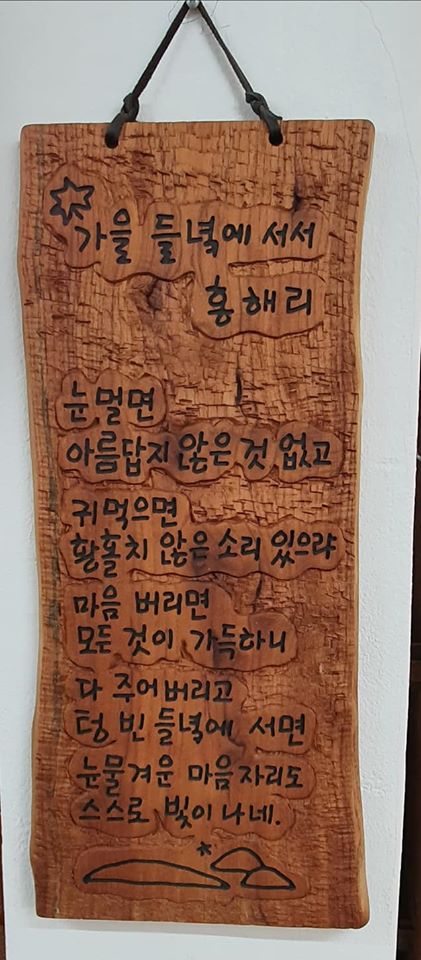 가을 들녘에 서서
홍해리
눈멀면
아름답지 않은 것 없고
귀먹으면
황홀치 않은 소리 있으랴
마음 버리면
모든 것이 가득하니
다 주어버리고
텅 빈 들녘에 서면
눈물겨운 마음자리도
스스로 빛이 나네.